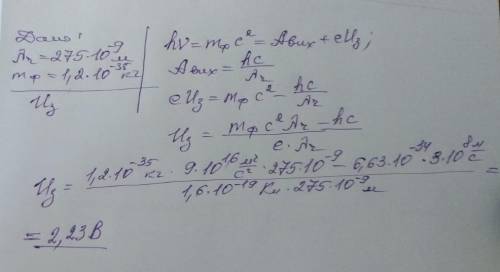 Дано:
λч = 275·10⁻⁹ м
mф = 1,2·10⁻³⁵ кг
Uз
hν = mф c² = Aвих + eUз;
Aвих = hc/λч
eUз = mф c² - hc/λч
Uз = (mф c² λч - hc)/(e·λч)
Uз = (1,2·10⁻³⁵ кг · 9·10¹⁶ м²/с² · 275·10⁻⁹ - 6,63·10⁻³⁴ · 3·10⁸ м/с)/(1,6·10⁻¹⁹ Кл · 275·10⁻⁹ м) =
= 2,23 В